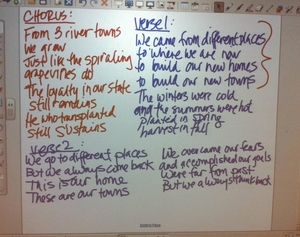 CHORUS:
From 3 river towns
We grew
Just like the spiraling
grapevines do
The loyalty in our state
Still remains
He who transplanted
Still Sustains
Verse 1:
We came from different places
to where we are now
to build our new homes
to build our new towns
The winters were cold
and the summers were hot
planted in spring
harvest in fall
Verse 2:
We go to different places
But we always come back
This is our home
These are our towns
We overcame our fears
and accomplished our goals
We're far from past
But we always think back